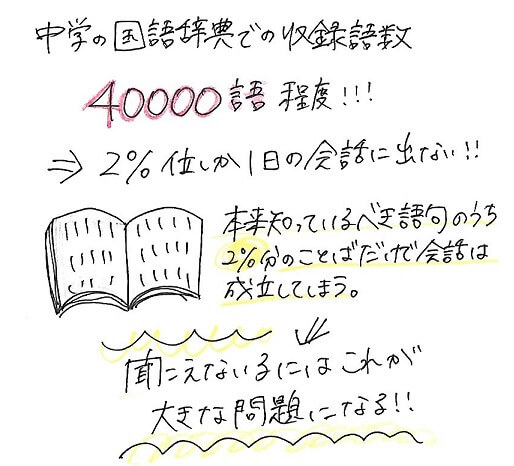 中学の国語辞典での収録語数
40000語 程度!!!
⇒ 2%位しか1日の会話に出ない!!
本来知っているべき語句のうち
2%分のことばだけで会話は
成立してしまう。
聞こえない子にはこれが
大きな問題になる!!